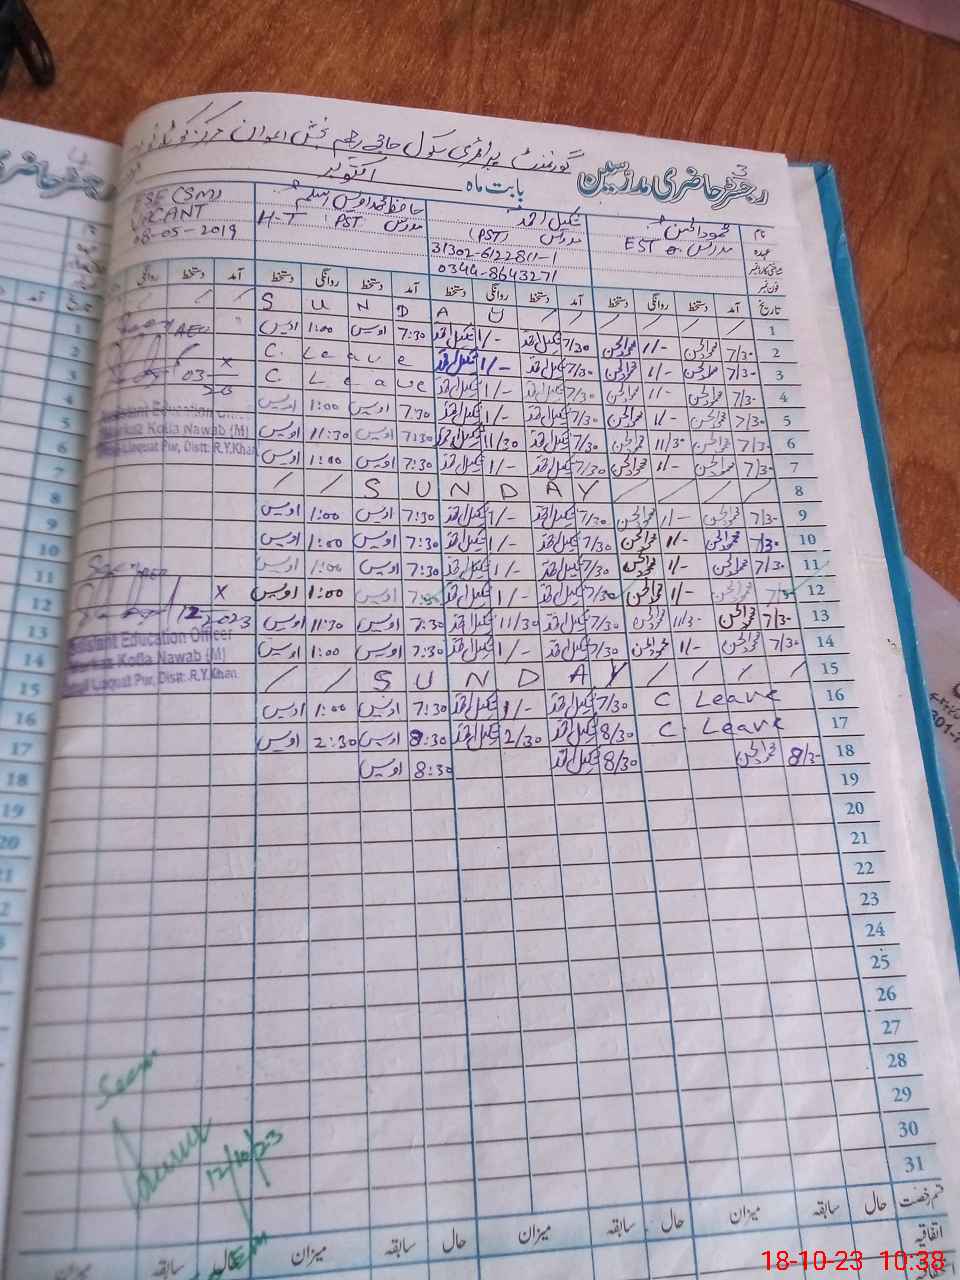 3
رجسٹر حاضری مدرسین بابت ماہ اکتوبر
گورنمنٹ پرائمری سکول حاجی رحیم بخش اعوان مرکز
نام محمود الحسن شکیل احمد حافظ محمد اویس اسلم ESE (SM)
عہدہ مدرس EST مدرس (PST) مدرس PST H-T VACANT
31302-6122811-1 08-05-2019
فون نمبر 0344-8643271
تاریخ آمد دستخط روانگی دستخط آمد دستخط روانگی دستخط آمد دستخط روانگی دستخط آمد دستخط روانگی
1 / / / / / / S U N D A Y / / /
2 7/30 محمود الحسن 1/- محمود الحسن 7/30 شکیل احمد 1/- شکیل احمد 7:30 اویس 1:00 اویس
3 7/30 محمود الحسن 1/- محمود الحسن 7/30 شکیل احمد 1/- شکیل احمد C. Leave
4 7/30 محمود الحسن 1/- محمود الحسن 7/30 شکیل احمد 1/- شکیل احمد C. Leave
5 7/30 محمود الحسن 1/- محمود الحسن 7/30 شکیل احمد 1/- شکیل احمد 7:30 اویس 1:00 اویس
6 7/30 محمود الحسن 11/30 محمود الحسن 7/30 شکیل احمد 11/30 شکیل احمد 7:30 اویس 11:30 اویس
7 7/30 محمود الحسن 1/- محمود الحسن 7/30 شکیل احمد 1/- شکیل احمد 7:30 اویس 1:00 اویس
8 / / S U N D A Y / / / /
9 7/30 محمود الحسن 1/- محمود الحسن 7/30 شکیل احمد 1/- شکیل احمد 7:30 اویس 1:00 اویس
10 7/30 محمود الحسن 1/- محمود الحسن 7/30 شکیل احمد 1/- شکیل احمد 7:30 اویس 1:00 اویس
11 7/30 محمود الحسن 1/- محمود الحسن 7/30 شکیل احمد 1/- شکیل احمد 7:30 اویس 1:00 اویس
12 7/30 محمود الحسن 1/- محمود الحسن 7/30 شکیل احمد 1/- شکیل احمد 7:30 اویس 1:00 اویس
13 7/30 محمود الحسن 11/30 محمود الحسن 7/30 شکیل احمد 11/30 شکیل احمد 7:30 اویس 11:30 اویس
14 7/30 محمود الحسن 1/- محمود الحسن 7/30 شکیل احمد 1/- شکیل احمد 7:30 اویس 1:00 اویس
15 / / S U N D A Y / / / /
16 C Leave 7/30 شکیل احمد 1/- شکیل احمد 7:30 اویس 1:00 اویس
17 C. Leave 8/30 شکیل احمد 2/30 شکیل احمد 8:30 اویس 2:30 اویس
18 8/30 محمود الحسن 8/30 شکیل احمد 8:30 اویس
19
20
21
22
23
24
25
26
27
28
29
30
31
Seen AEO
03
Assistant Education Officer
Markaz Kotla Nawab (M)
Tehsil Liaquat Pur, Distt: R.Y.Khan
Seen AEO
12
2023
Assistant Education Officer
Markaz Kotla Nawab (M)
Tehsil Liaquat Pur, Distt: R.Y.Khan
Seen
12/10/23
قسم رخصت حال سابقہ میزان حال سابقہ میزان حال سابقہ میزان حال سابقہ میزان
اتفاقیہ
18-10-23 10:38